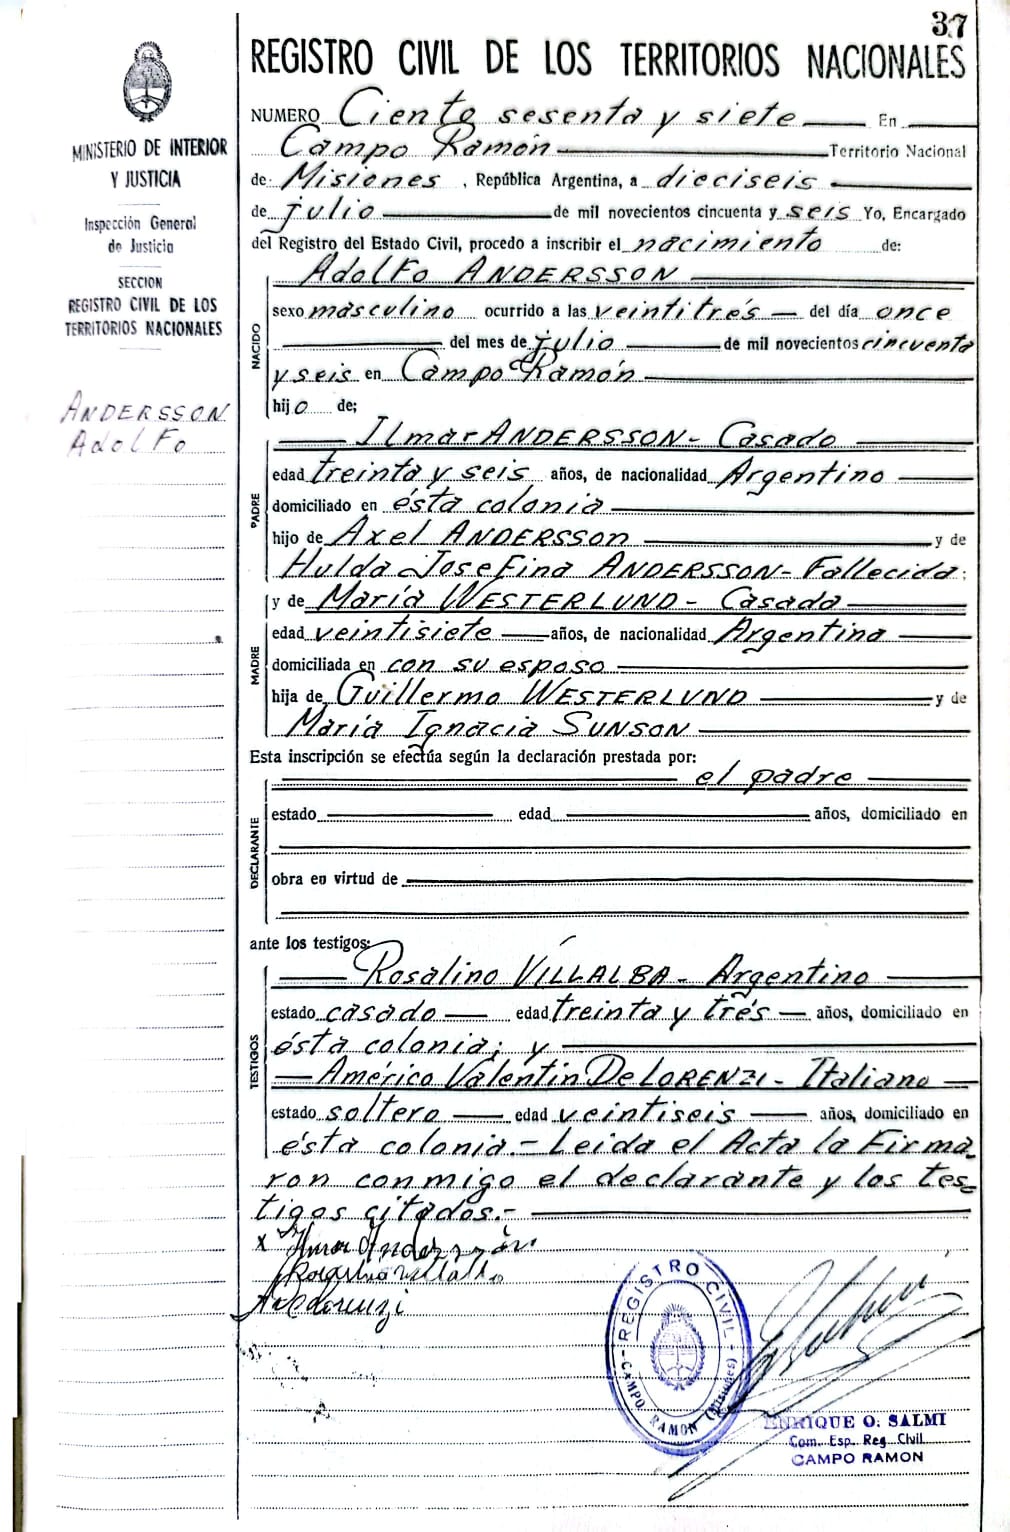 37
REGISTRO CIVIL DE LOS TERRITORIOS NACIONALES
MINISTERIO DE INTERIOR
Y JUSTICIA
Inspección General
de Justicia
SECCION
REGISTRO CIVIL DE LOS
TERRITORIOS NACIONALES
ANDERSSON
Adolfo
NUMERO Ciento sesenta y siete En
Campo Ramón Territorio Nacional
de Misiones, República Argentina, a dieciseis
de julio de mil novecientos cincuenta y seis Yo, Encargado
del Registro del Estado Civil, procedo a inscribir el nacimiento de:
NACIDO
Adolfo ANDERSSON
sexo masculino ocurrido a las veintitrés del día once
del mes de julio de mil novecientos cincuenta
y seis en Campo Ramón
hijo de;
PADRE
Ilmar ANDERSSON - Casado
edad treinta y seis años, de nacionalidad Argentino
domiciliado en ésta colonia
hijo de Axel ANDERSSON y de
Hulda Josefina ANDERSSON - Fallecida;
MADRE
y de María WESTERLUND - Casada
edad veintisiete años, de nacionalidad Argentina
domiciliada en con su esposo
hija de Guillermo WESTERLUND y de
María Ignacia SUNSON
Esta inscripción se efectúa según la declaración prestada por:
DECLARANTE
el padre
estado edad años, domiciliado en
obra en virtud de
ante los testigos:
TESTIGOS
Rosalino VILLALBA - Argentino
estado casado edad treinta y trés años, domiciliado en
ésta colonia; y
Américo Valentín De LORENZI - Italiano
estado soltero edad veintiseis años, domiciliado en
ésta colonia.- Leida el Acta la Firma-
ron conmigo el declarante y los tes-
tigos citados.-
x Ilmar Anderzzón
Rosalino Villalba
A V De Lorenzi
REGISTRO CIVIL - CAMPO RAMON (Misiones) -
ENRIQUE O. SALMI
Com. Esp. Reg. Civil
CAMPO RAMON